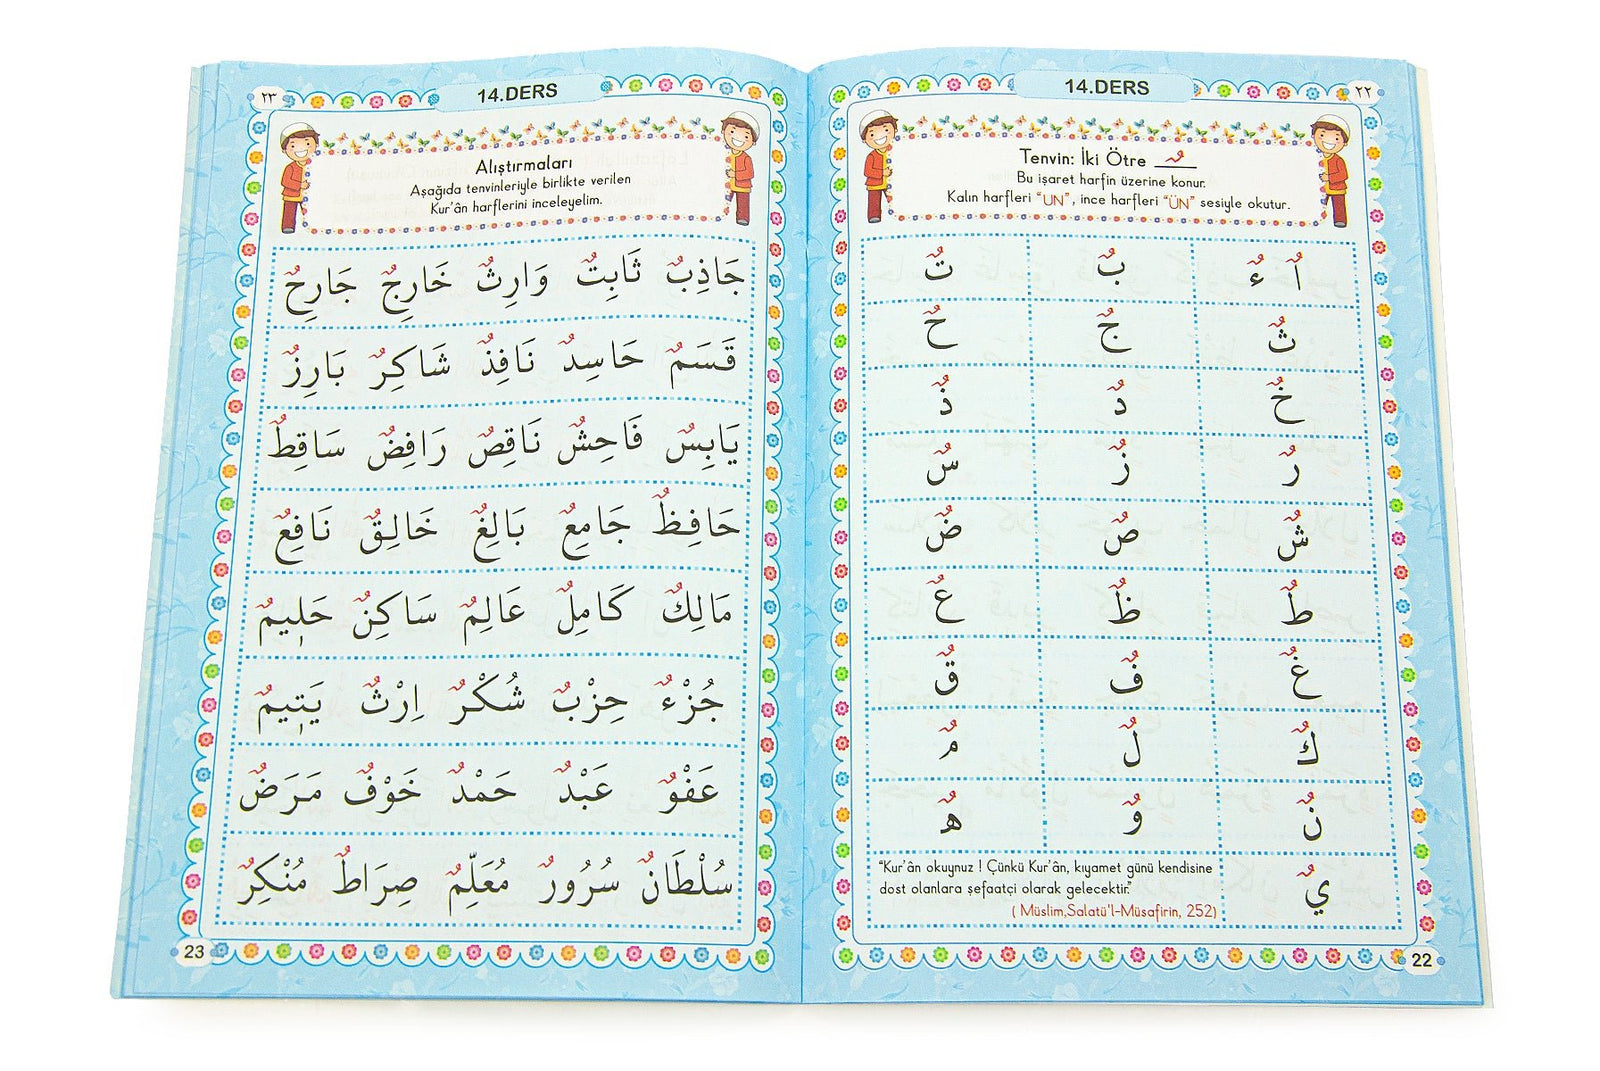 ٢٢
14.DERS
Tenvin: İki Ötre ـٌ
Bu işaret harfin üzerine konur.
Kalın harfleri “UN”, ince harfleri “ÜN” sesiyle okutur.
اٌ ءٌ بٌ تٌ
ثٌ جٌ حٌ
خٌ دٌ ذٌ
رٌ زٌ سٌ
شٌ صٌ ضٌ
طٌ ظٌ عٌ
غٌ فٌ قٌ
كٌ لٌ مٌ
نٌ وٌ هٌ
يٌ
“Kur’ân okuynuz ! Çünkü Kur’ân, kıyamet günü kendisine
dost olanlara şefaatçi olarak gelecektir.”
( Müslim,Salatü'l-Müsafirin, 252)
22
٢٣
14.DERS
Alıştırmaları
Aşağıda tenvinleriyle birlikte verilen
Kur’ân harflerini inceleyelim.
جَاذِبٌ ثَابِتٌ وَارِثٌ خَارِجٌ جَارِحٌ
قَسَمٌ حَاسِدٌ نَافِذٌ شَاكِرٌ بَارِزٌ
يَابِسٌ فَاحِشٌ نَاقِصٌ رَافِضٌ سَاقِطٌ
حَافِظٌ جَامِعٌ بَالِغٌ خَالِقٌ نَافِعٌ
مَالِكٌ كَامِلٌ عَالِمٌ سَاكِنٌ حَلِيمٌ
جُزْءٌ حِزْبٌ شُكْرٌ اِرْثٌ يَتِيمٌ
عَفْوٌ عَبْدٌ حَمْدٌ خَوْفٌ مَرَضٌ
سُلْطَانٌ سُرُورٌ مُعَلِّمٌ صِرَاطٌ مُنْكِرٌ
23